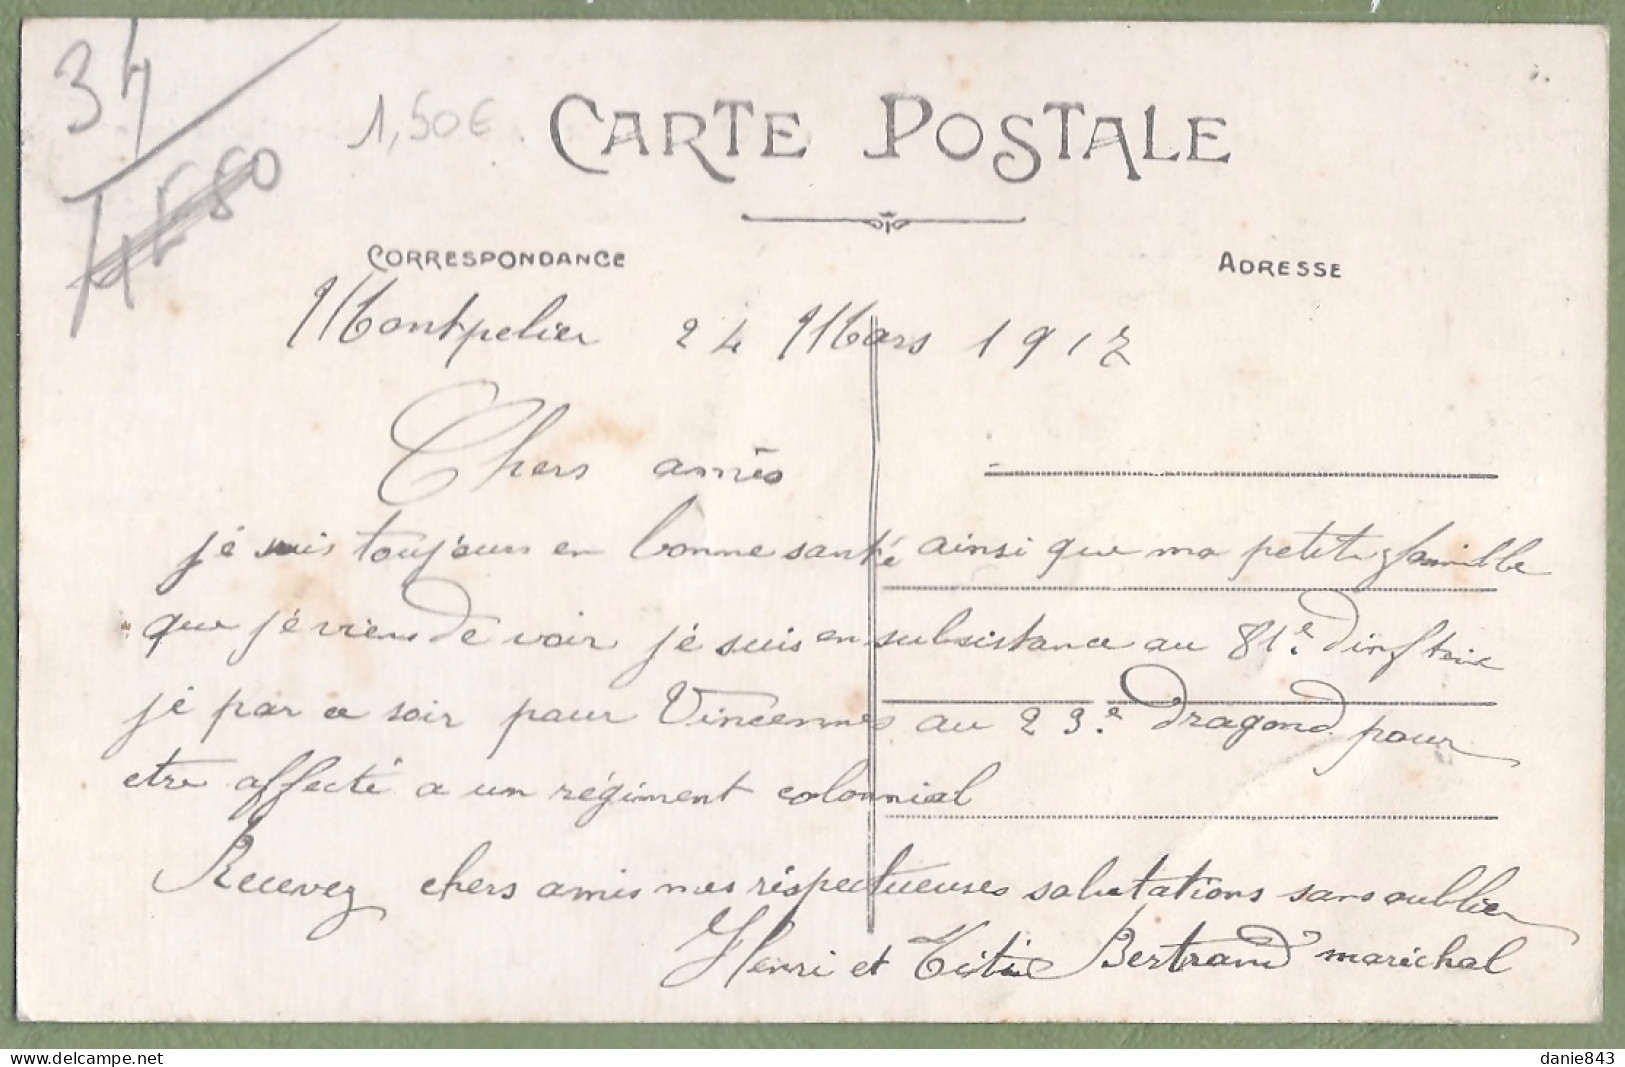 34
1,50€
CARTE POSTALE
CORRESPONDANCE
ADRESSE
Montpelier 24 Mars 1917
Chers amies
je suis toujours en bonne santé ainsi que ma petite famille
que je viens de voir je suis en subsistance au 81e. d'inft
je par ce soir pour Vincennes au 23e. dragond pour
etre affecté a un régiment colonnial
Recevez chers amis mes réspectueuses salutations sans oublier
Henri et Titine Bertrand maréchal
danie843